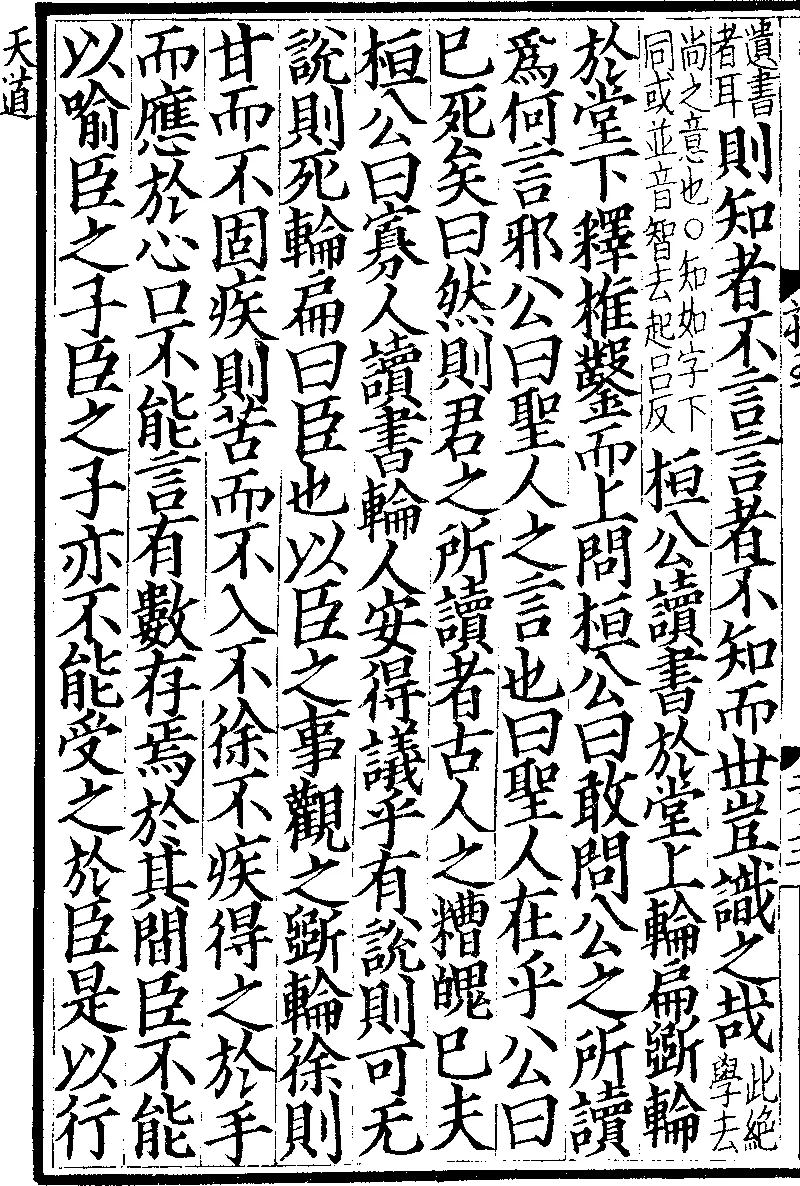 遺書者耳則知者不言言者不知而世豈識之哉此絶學去
尚之意也○知如字下同或並音智去起呂反桓公讀書於堂上輪扁斲輪
於堂下釋椎鑿而上問桓公曰敢問公之所讀
爲何言邪公曰聖人之言也曰聖人在乎公曰
已死矣曰然則君之所讀者古人之糟魄已夫
桓公曰寡人讀書輪人安得議乎有說則可无
說則死輪扁曰臣也以臣之事觀之斲輪徐則
甘而不固疾則苦而不入不徐不疾得之於手
而應於心口不能言有數存焉於其間臣不能
以喻臣之子臣之子亦不能受之於臣是以行
天道